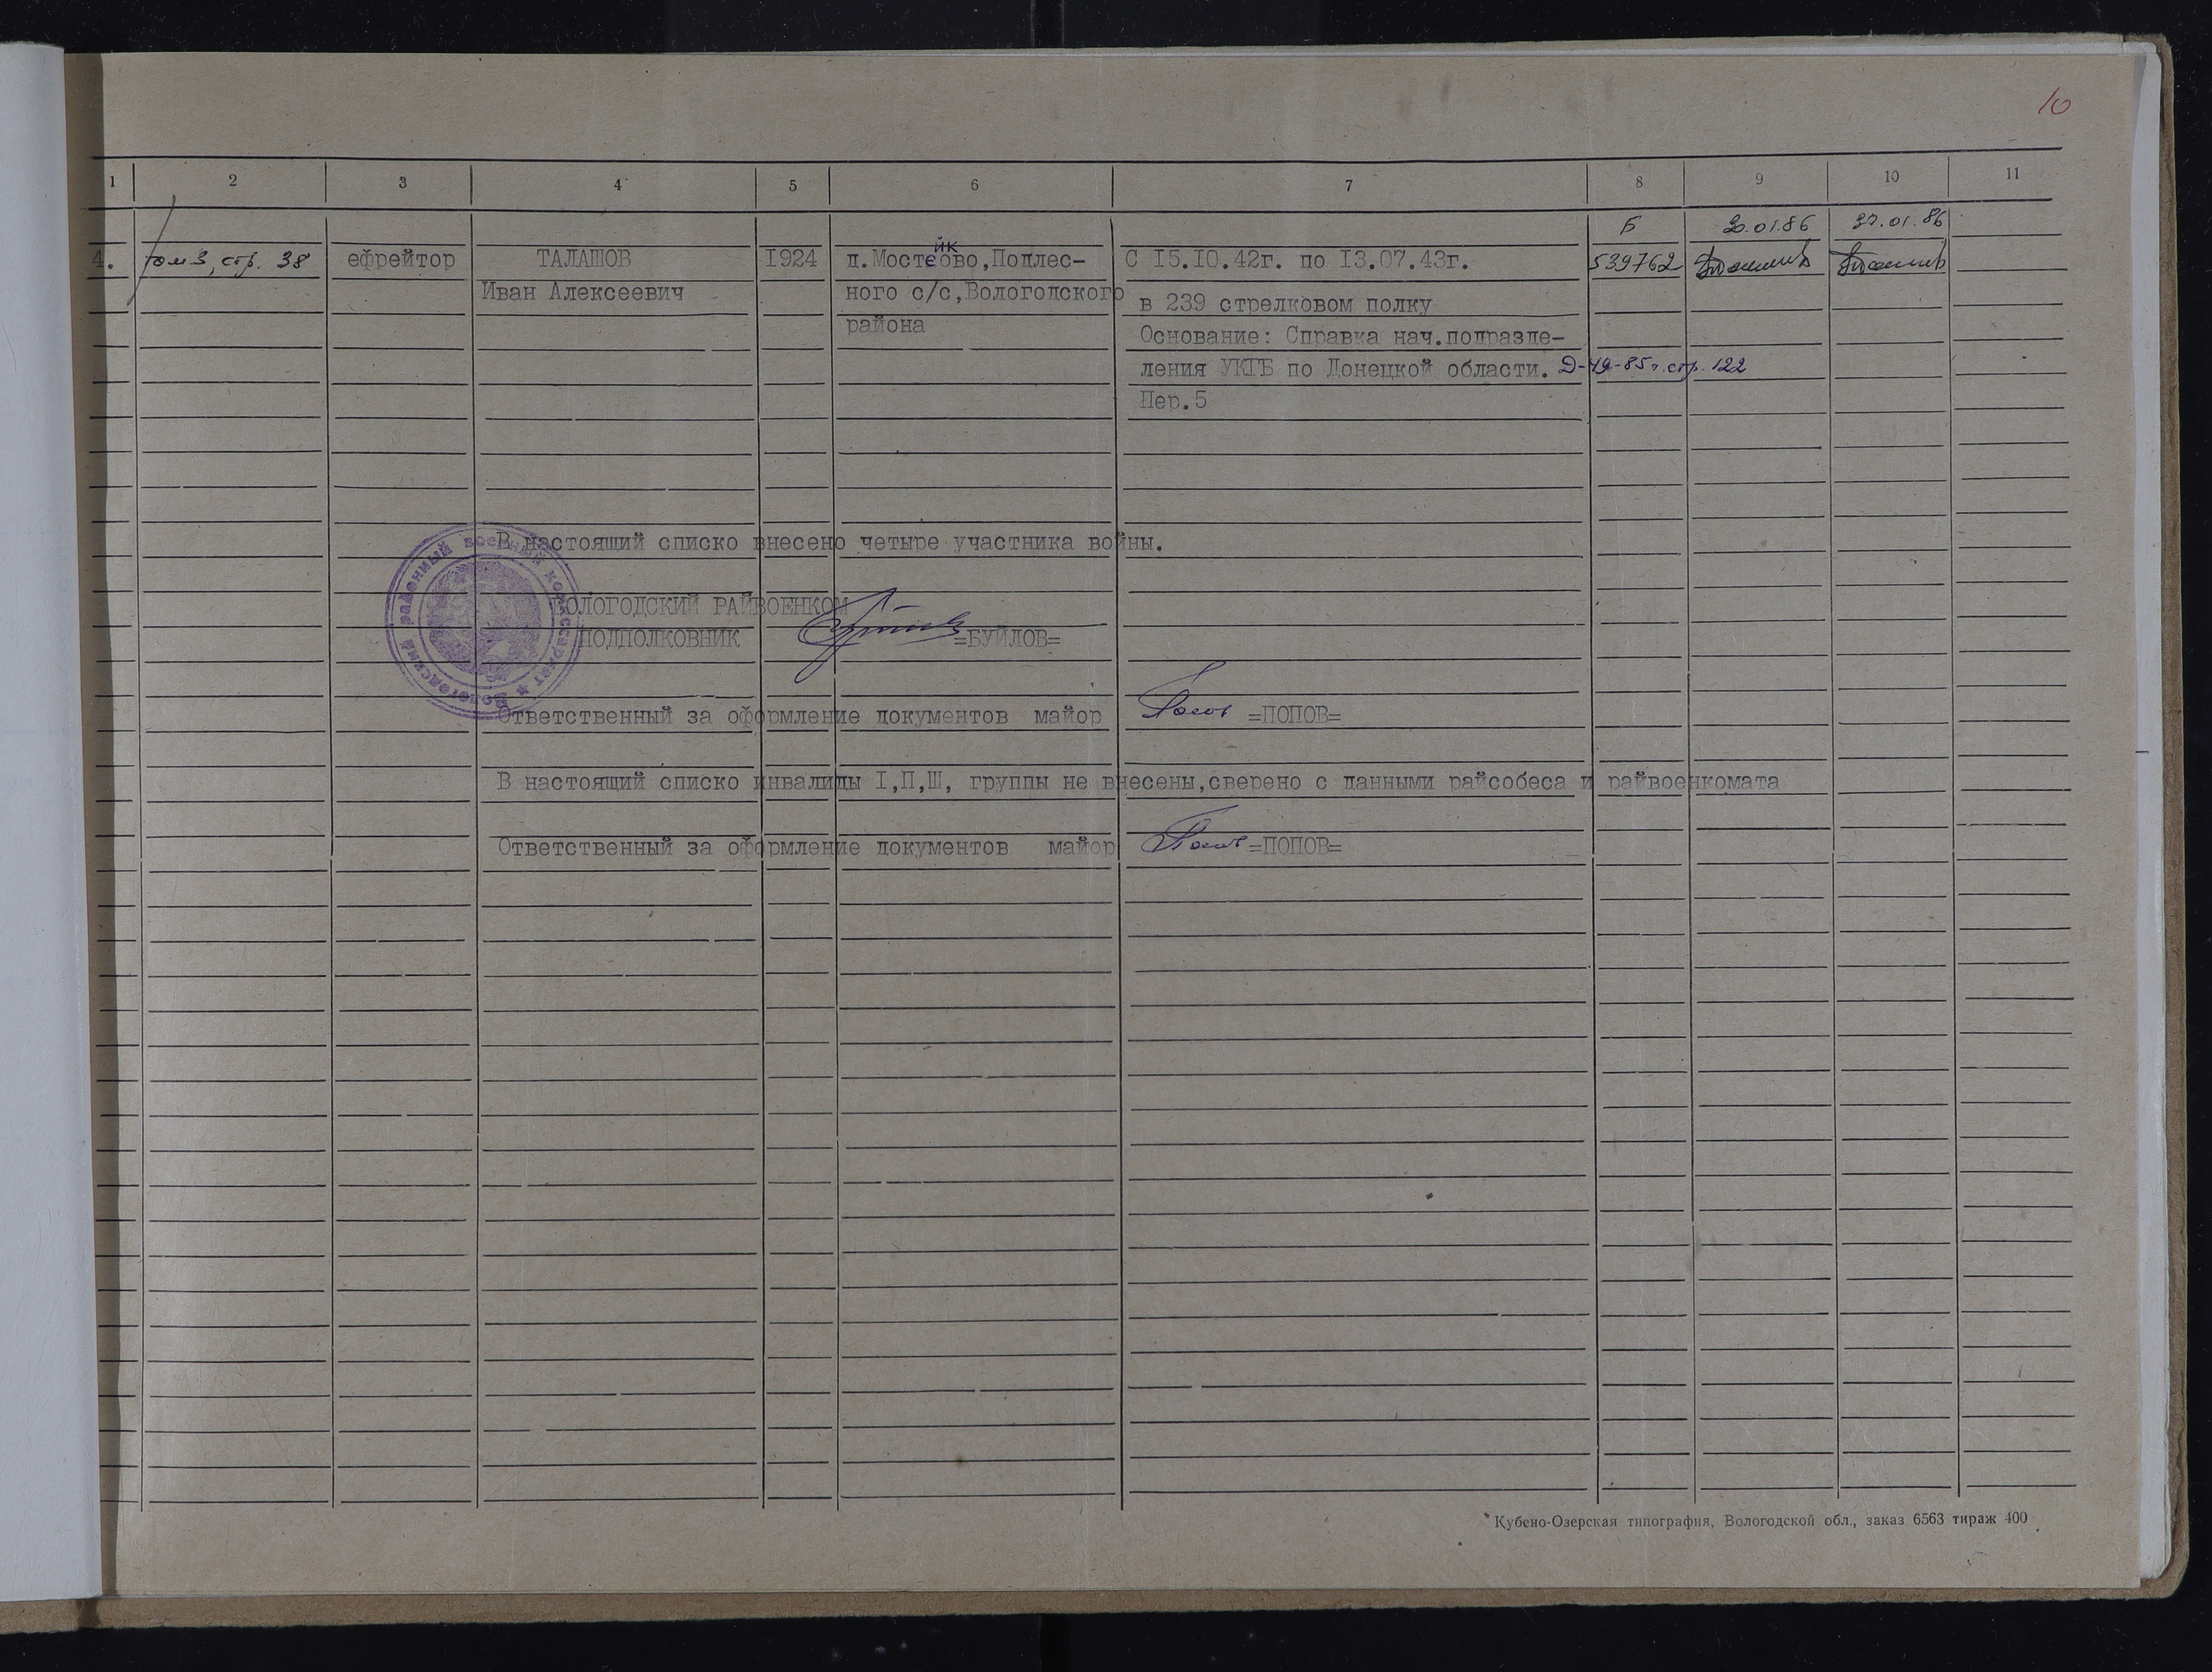 10
1 2 3 4 5 6 7 8 9 10 11
Б 20.01.86 27.01.86
4. том 3, стр. 38 ефрейтор ТАЛАШОВ 1924 д.Мостейково,Поллес- С 15.10.42г. по 13.07.43г. 539762
Иван Алексеевич ного с/с,Вологодского в 239 стрелковом полку
района Основание: Справка нач.подразде-
ления УКГБ по Донецкой области. Д-49-85г. стр. 122
Пер.5
В настоящий списко внесено четыре участника войны.
ВОЛОГОДСКИЙ РАЙВОЕНКОМ
ПОДПОЛКОВНИК =БУЙЛОВ=
Вологодский районный военный комиссариат
Ответственный за оформление документов майор Попов =ПОПОВ=
В настоящий списко инвалиды I,П,Ш, группы не внесены,сверено с данными райсобеса и райвоенкомата
Ответственный за оформление документов майор Попов =ПОПОВ=
Кубено-Озерская типография, Вологодской обл., заказ 6563 тираж 400